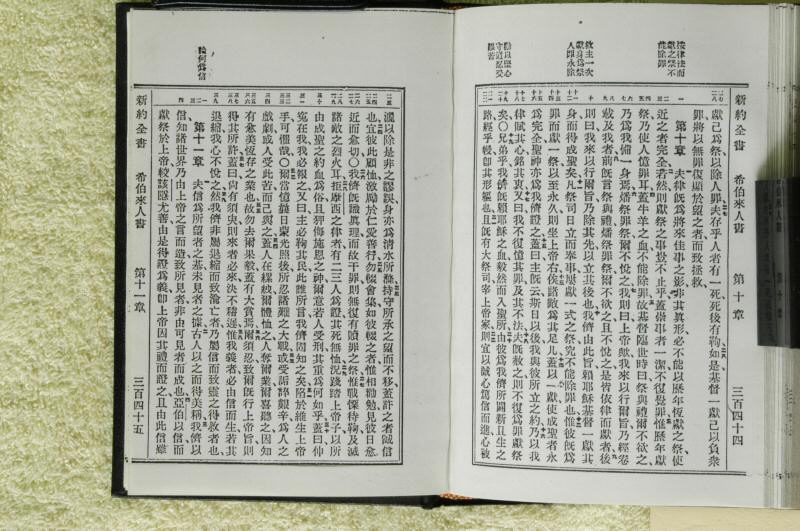 按律法而
獻之祭不
能除罪
救主一次
獻身爲祭
人卽永除
勸以堅心
守道忍受
艱苦
新約全書 希伯來人書 第十章 三百四十四
獻己爲祭以除人罪夫存乎人者有一死死後有鞫如是基督一獻己以負衆
罪將以無罪復顯於望之者而致拯救
第十章 夫律旣爲將來佳事之影非其眞形必不能以歷年恆獻之祭使
近之者完全若然則獻祭之事豈不止乎蓋崇事者一潔不復覺罪惟歷年獻
祭乃使人憶罪耳蓋牛羊之血不能除罪故基督臨世時曰祭與禮爾不欲之
乃爲我備一身焉燔祭罪祭爾不悅之我則曰上帝歟我來以行爾旨乃經卷
載及我者前旣言祭與禮燔祭罪祭爾不欲之且不悅之是皆依律而獻者後
則曰我來以行爾旨乃除其先以立其後也我儕由此旨賴耶穌基督一獻其
身而得成聖矣凡祭司日立而奉事屢獻一式之祭究不能除罪也惟彼旣爲
罪而獻一祭以至永久則坐上帝右俟諸敵爲其足几蓋以一獻使成聖者永
爲完全聖神亦爲我儕證之蓋曰主旣云斯日以後我與彼所立之約乃以我
律賦其心銘其衷又曰我不復憶其罪及其不法夫旣赦之則不復爲罪獻祭
矣○兄弟乎我儕旣賴耶穌之血毅然而入聖所由彼爲我儕所闢新且生之
路經乎幔卽其形軀也且旣有大祭司宰上帝家則宜以誠心篤信而進心被
論何爲信
灑以除是非之謬誤身亦爲清水所滌持守所承之望而不移蓋許之者誠信
也宜彼此顧恤激勵於仁愛善行勿輟會集如彼輟之者惟相勸勉見彼日愈
近而愈切○我儕旣識眞理而故干罪則無復有贖罪之祭惟戰慄待鞫及滅
諸敵之烈火耳拒摩西之律者有二三人爲證其死無恤況踐踏上帝子以所
由成聖之約血爲俗且狎侮施恩之神爾意若人受刑其重爲何如乎蓋曰伸
寃在我我必報之又曰主必鞫其民此誰所言我儕固知之矣陷於維生上帝
手可懼哉○爾當憶曩日蒙光照後所忍諸艱之大戰或受詬誶艱辛爲人之
戲劇或人受此苦而己與之蓋人在縲絏爾體恤之人奪爾業爾喜聽之因知
有愈美恆存之業也故勿去爾果毅蓋有大賞焉爾須忍致爾旣行上帝旨則
得其所許蓋曰尙有須臾則來者必來決不稽遲惟我義者必由信而生若其
退縮我心不悅之然我儕非屬退縮而致淪亡者乃屬信而致靈之得救者也
第十一章 夫信爲所望者之基未見者之據古人以之而得美稱我儕以
信知諸世界乃由上帝之言而造致所見者非由可見者而成也亞伯以信而
獻祭於上帝較該隱尤善由是得證爲義卽上帝因其禮而證之且由此信雖
新約全書 希伯來人書 第十一章 三百四十五